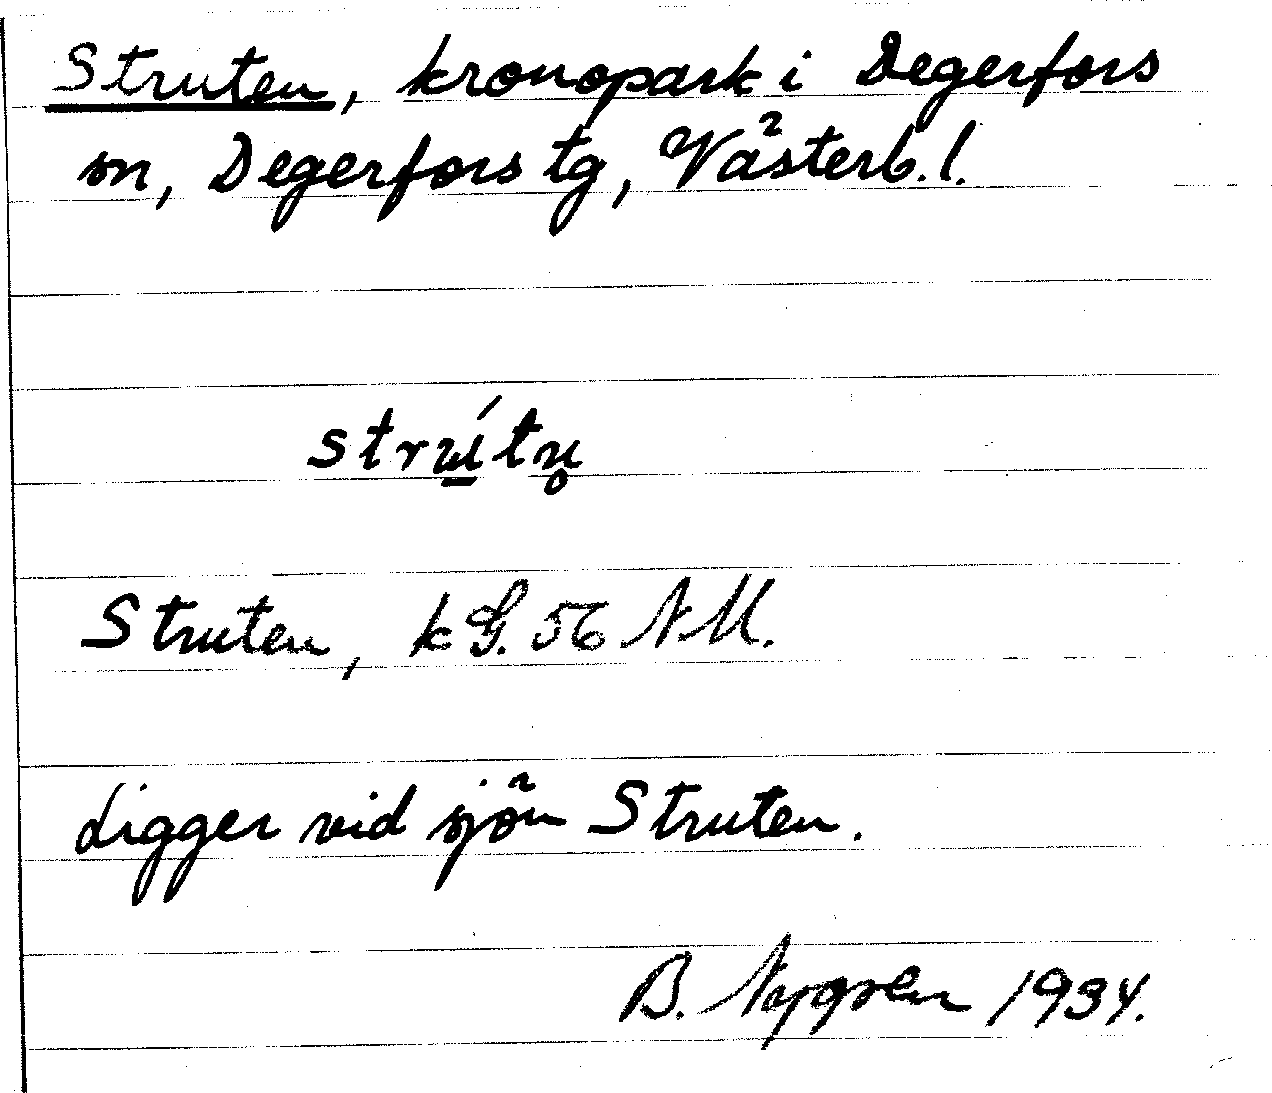 Struten, kronopark i Degerfors
sn, Degerfors tg, Västerb. l.
strṵ́tn̥
Struten, kG. 56 NM.
Ligger vid sjön Struten.
B. Nygren 1934.